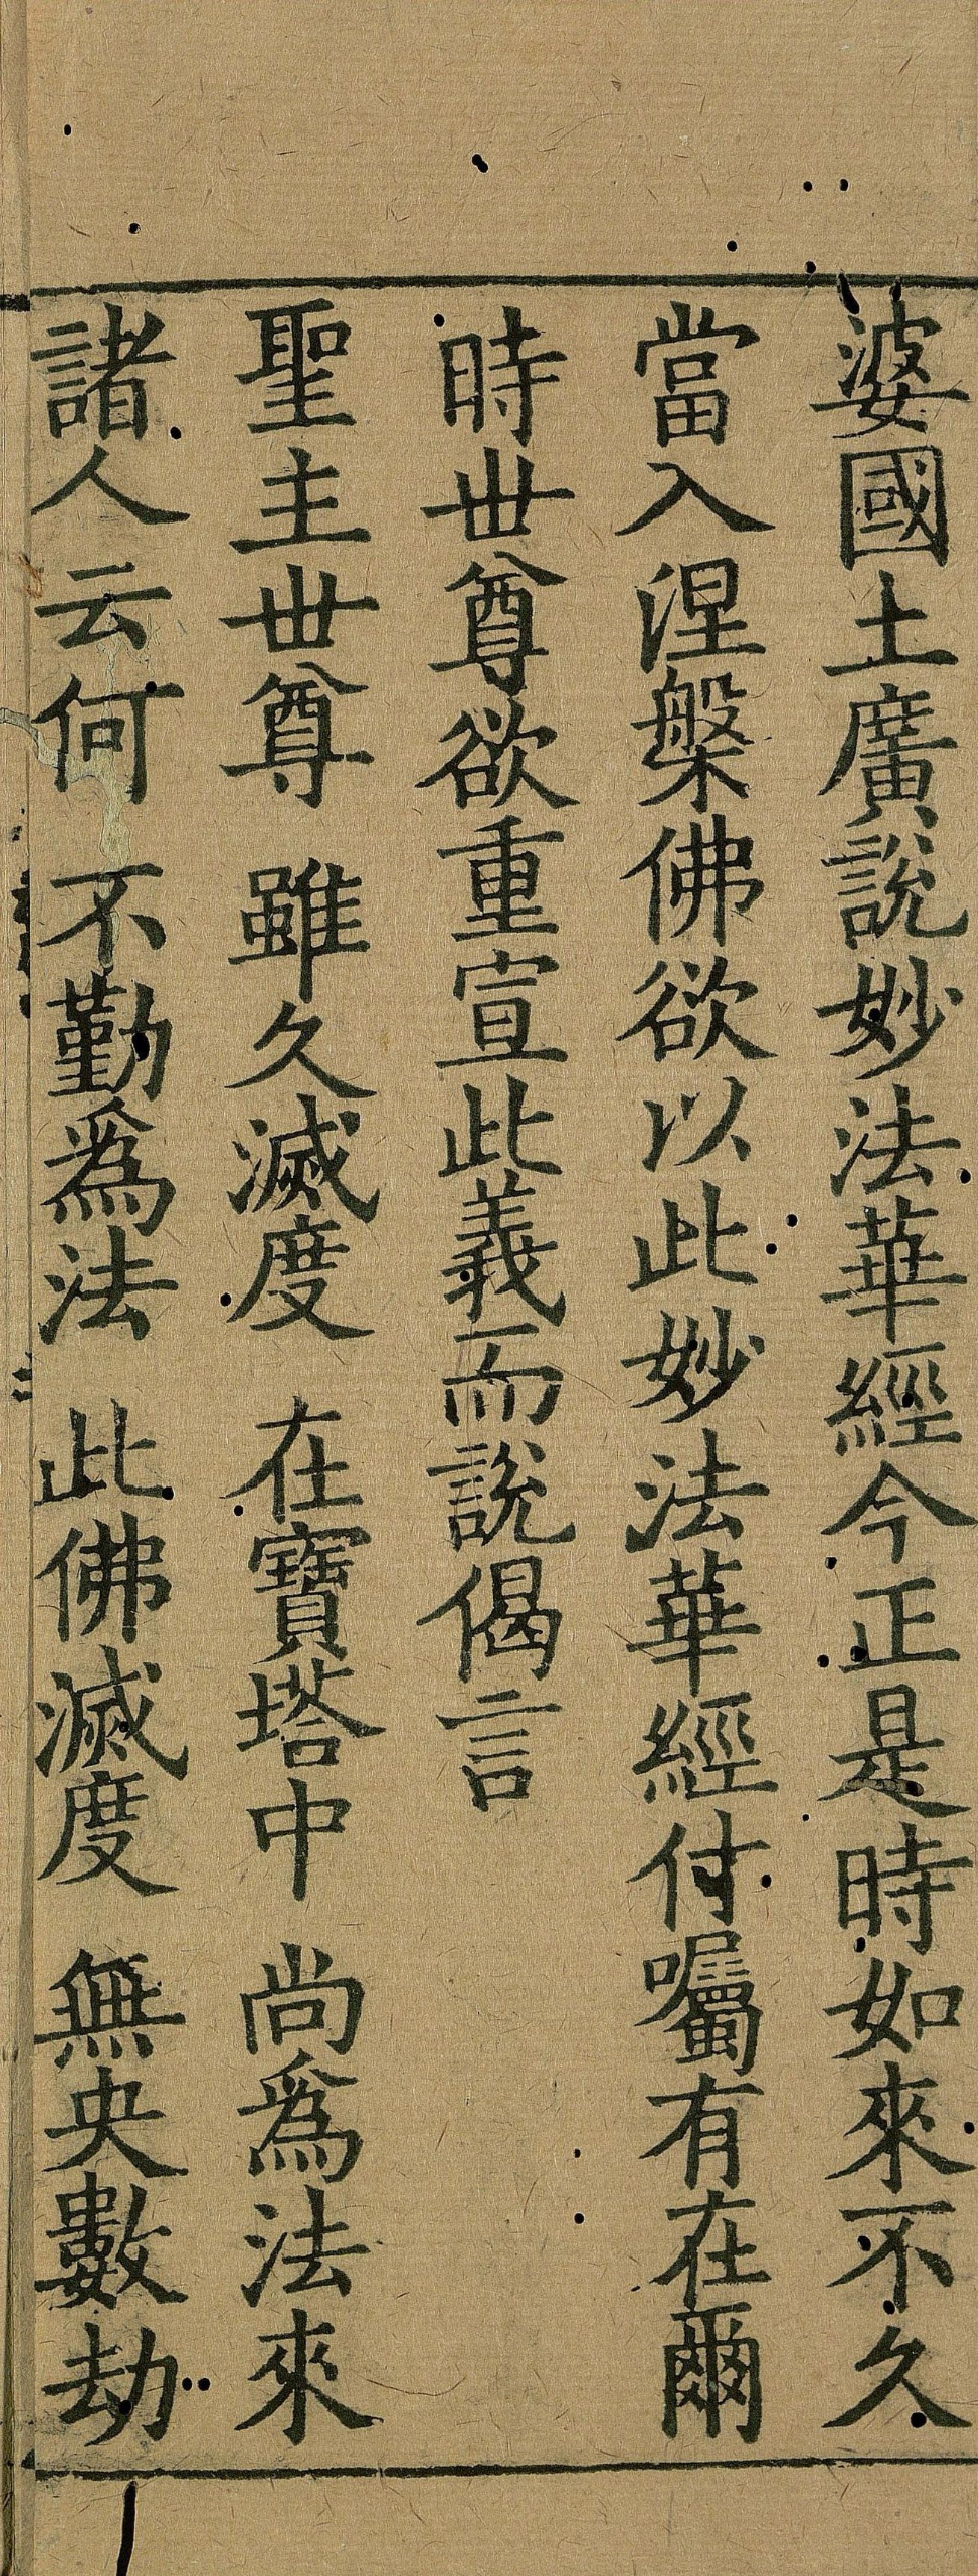 婆國土廣說妙法華經今正是時如來不久
當入涅槃佛欲以此妙法華經付囑有在爾
時世尊欲重宣此義而說偈言
聖主世尊　雖久滅度　在寶塔中　尚為法來
諸人云何　不勤為法　此佛滅度　無央數劫